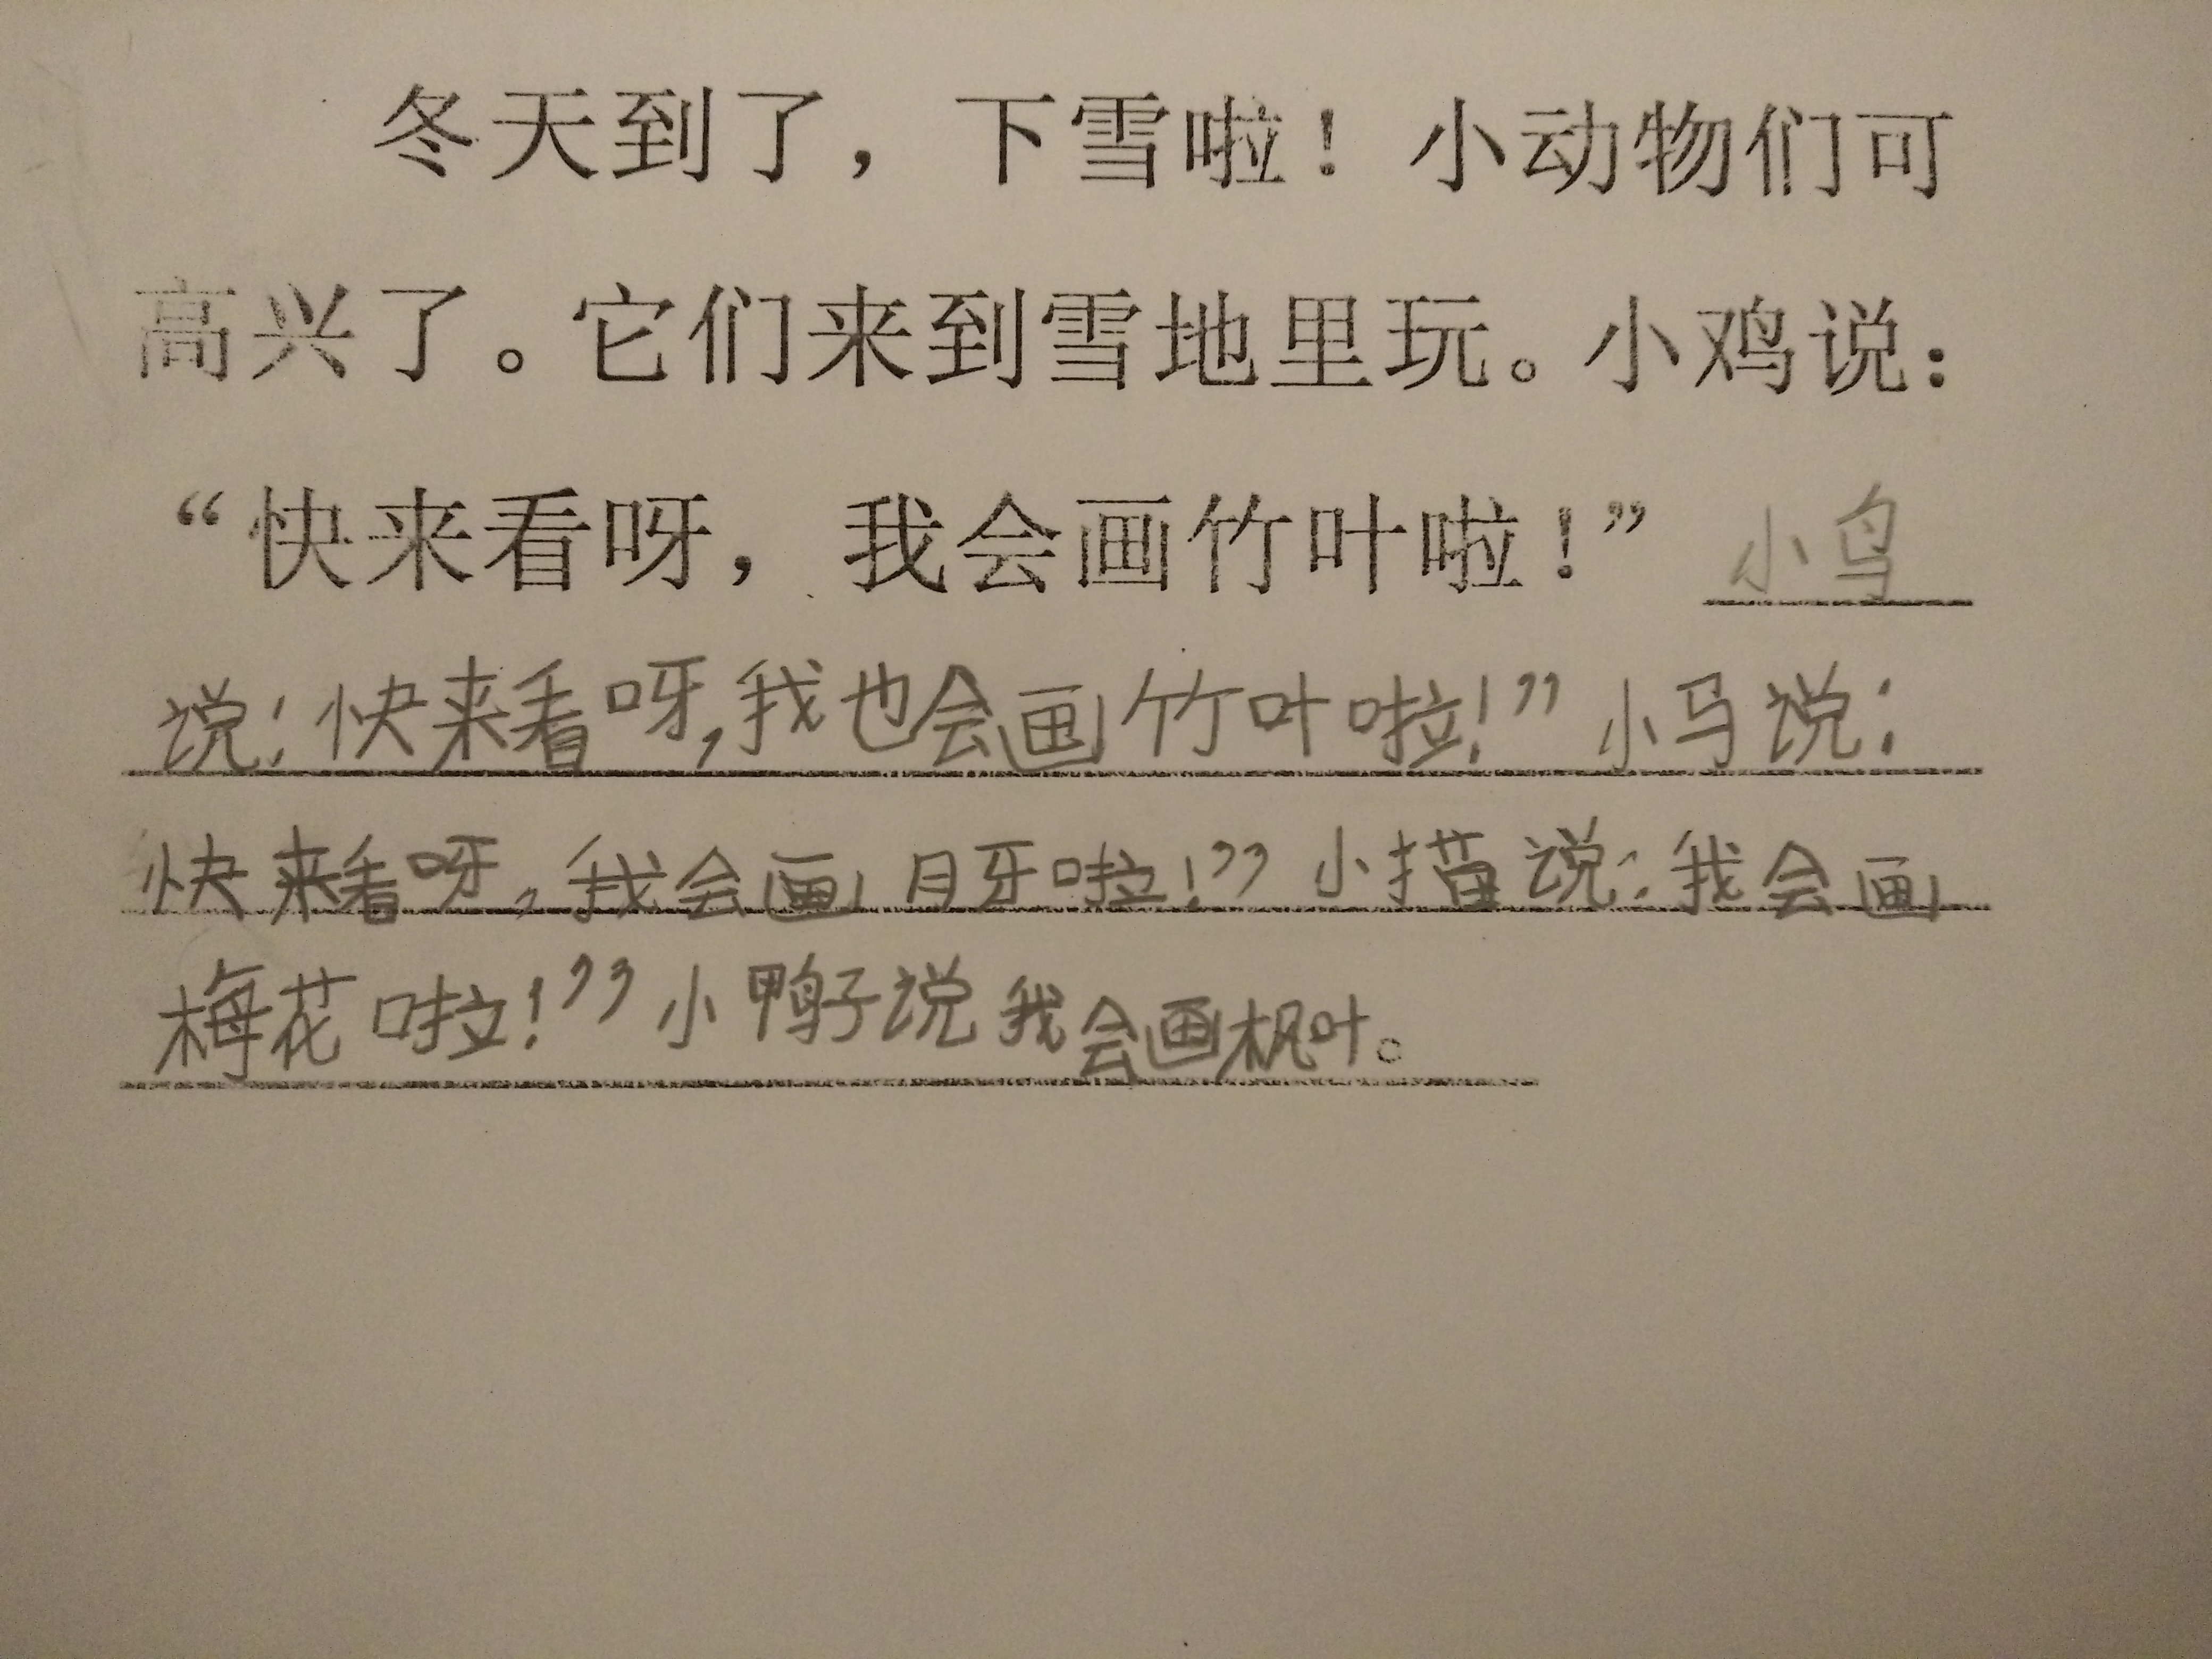 冬天到了，下雪啦！小动物们可
高兴了。它们来到雪地里玩。小鸡说：
“快来看呀，我会画竹叶啦！”小鸟
说：快来看呀,我也会画竹叶啦!”小马说：
快来看呀,我会画月牙啦!”小描说：我会画
梅花啦!”小鸭子说我会画枫叶。